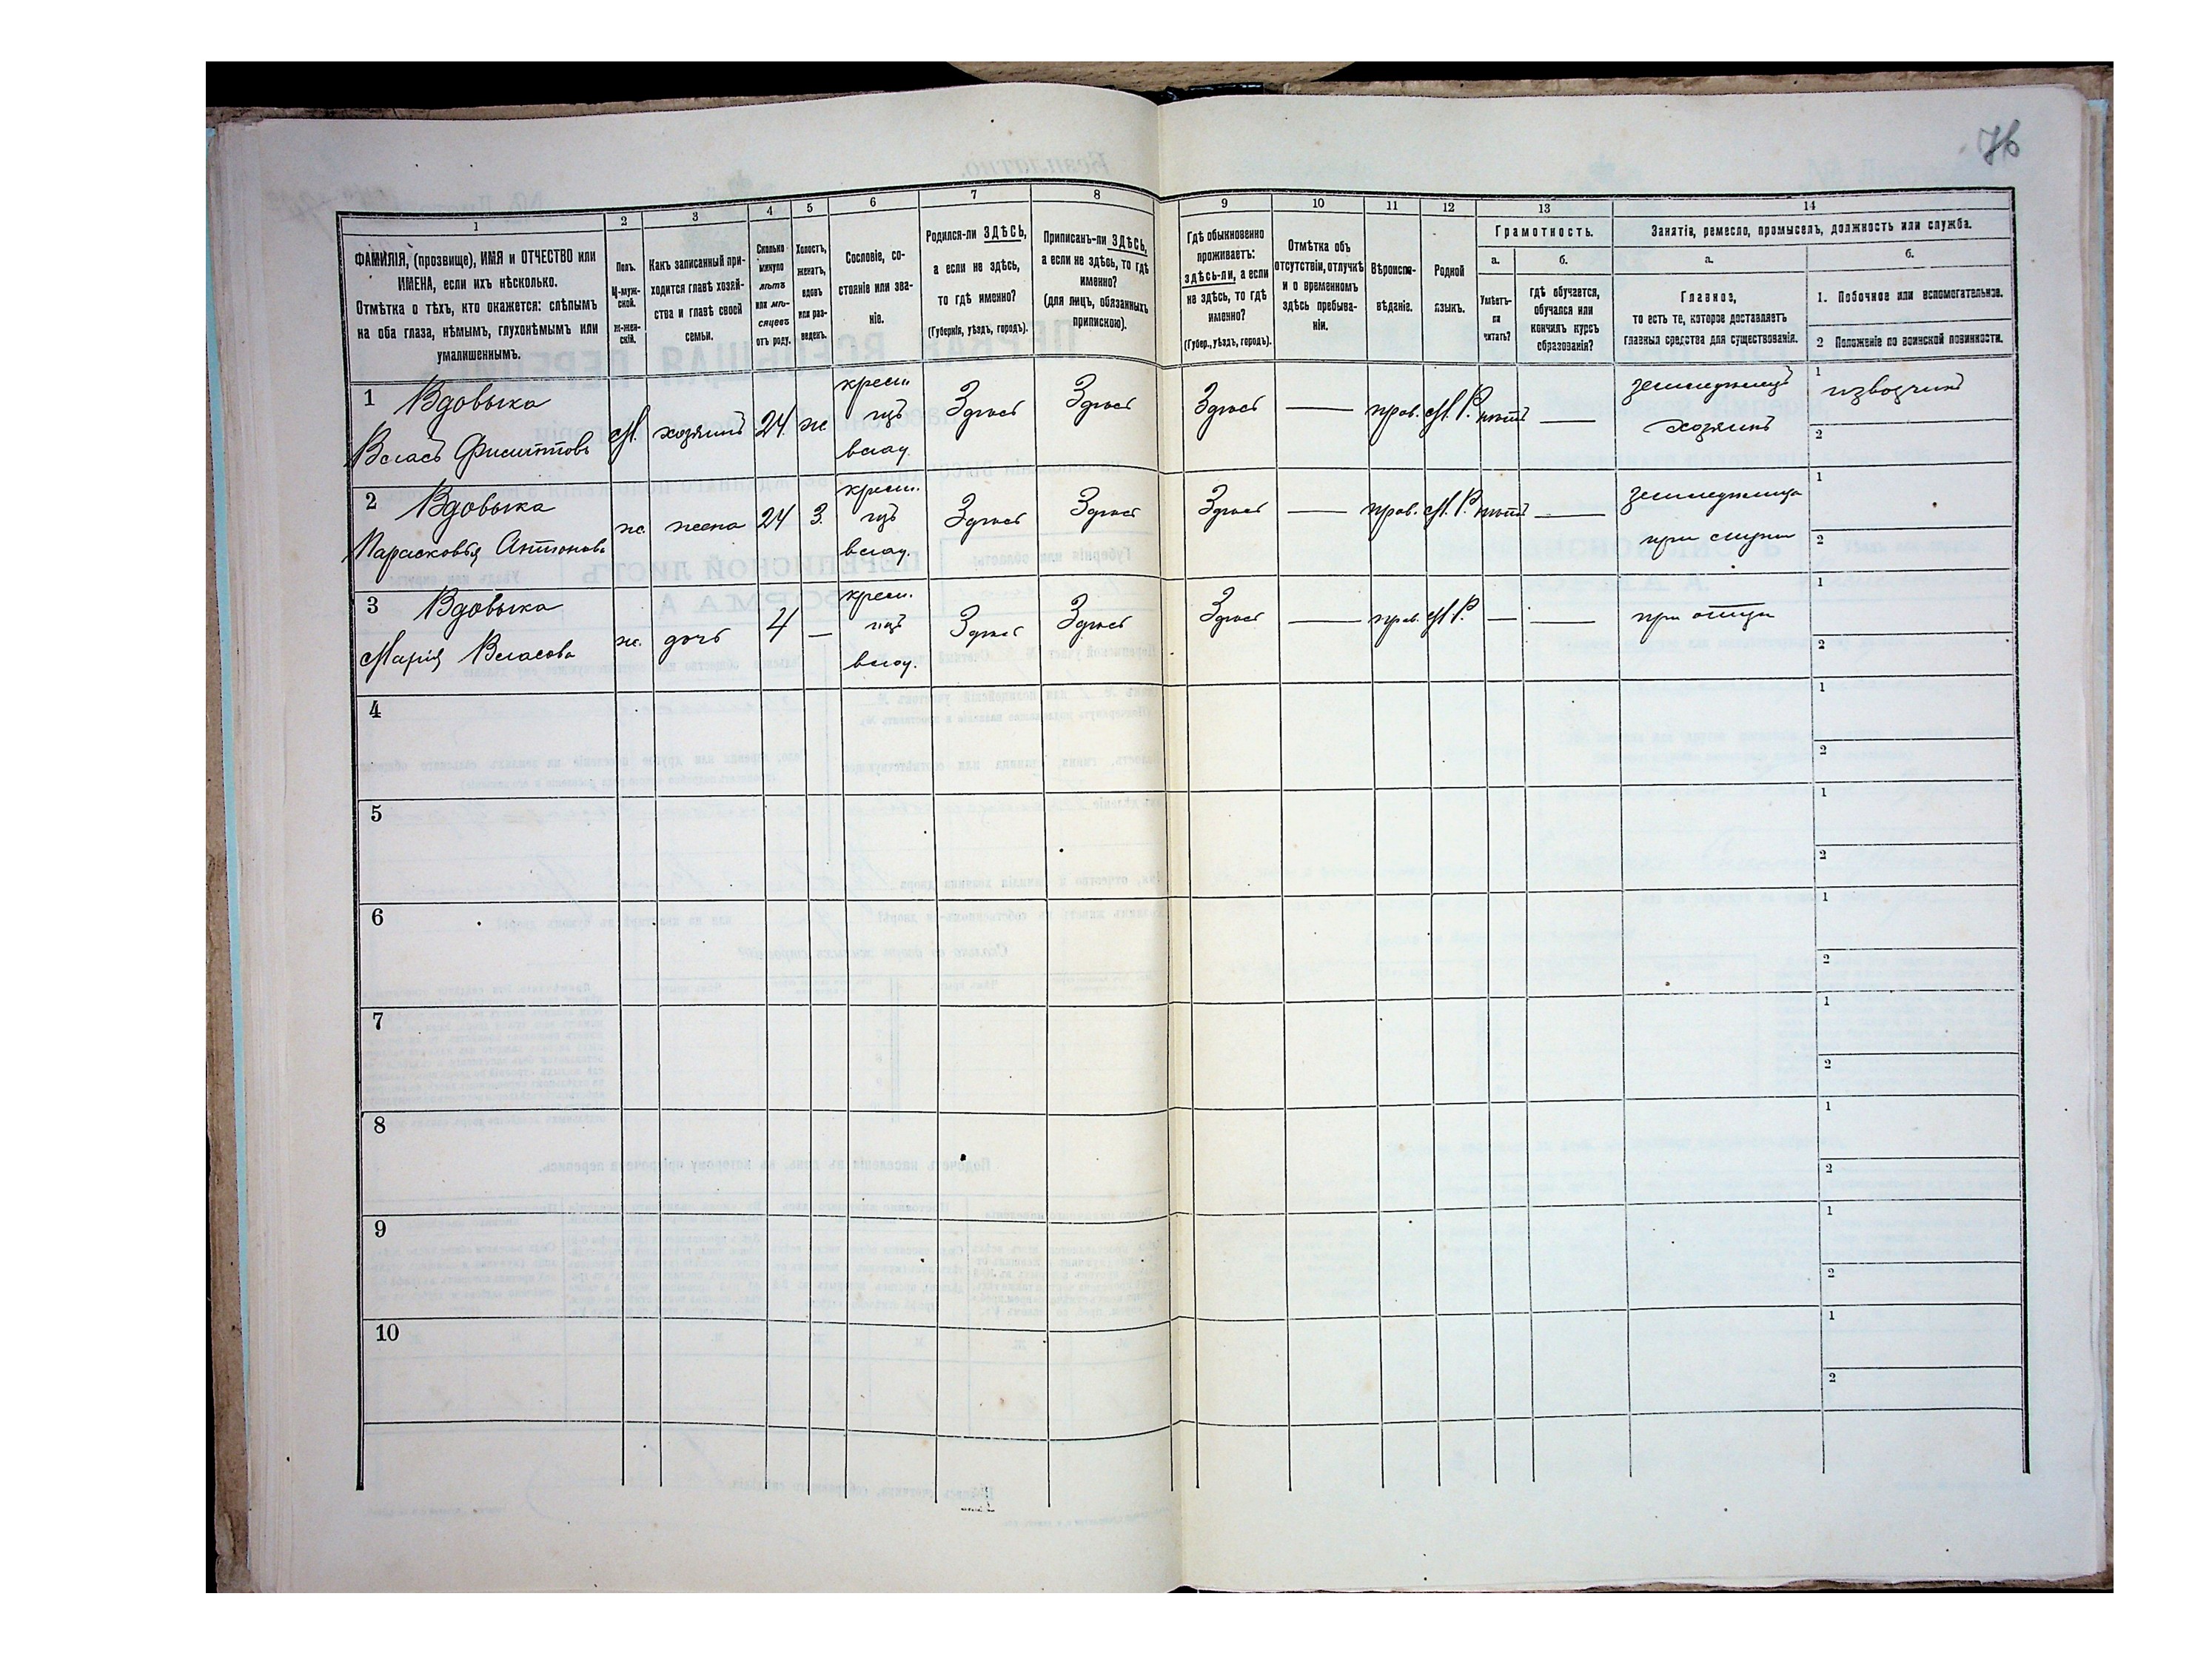 76
1 2 3 4 5 6 7 8 9 10 11 12 13 14
ФАМИЛІЯ, (прозвище), ИМЯ и ОТЧЕСТВО или
ИМЕНА, если ихъ нѣсколько.
Отмѣтка о тѣхъ, кто окажется: слѣпымъ
на оба глаза, нѣмымъ, глухонѣмымъ или
умалишеннымъ.
Полъ.
М-муж-
ской.
Ж-жен-
скій.
Какъ записанный при-
ходится главѣ хозяй-
ства и главѣ своей
семьи.
Сколько
минуло
лѣтъ
или мѣ-
сяцевъ
отъ роду.
Холостъ,
женатъ,
вдовъ
или раз-
веденъ.
Сословіе, со-
стояніе или зва-
ніе.
Родился-ли ЗДѢСЬ,
а если не здѣсь,
то гдѣ именно?
(Губернія, уѣздъ, городъ).
Приписанъ-ли ЗДѢСЬ,
а если не здѣсь, то гдѣ
именно?
(для лицъ, обязанныхъ
припискою).
Гдѣ обыкновенно
проживаетъ:
здѣсь-ли, а если
не здѣсь, то гдѣ
именно?
(Губер., уѣздъ, городъ).
Отмѣтка объ
отсутствіи, отлучкѣ
и о временномъ
здѣсь пребыва-
ніи.
Вѣроиспо-
вѣданіе.
Родной
языкъ.
Грамотность.
а.
Умѣетъ-
ли
читать?
б.
гдѣ обучается,
обучался или
кончилъ курсъ
образованія?
Занятія, ремесло, промыселъ, должность или служба.
а.
Главное,
то есть те, которое доставляетъ
главныя средства для существованія.
б.
1. Побочное или вспомогательное.
2 Положеніе по воинской повинности.
1 Вдовыка
Власъ Филиптовъ
М. хозяинъ 24 ж
крест.
изъ
влад.
Здѣсь Здѣсь Здѣсь — прав. М.Р. нѣтъ —
земледѣлецъ
хозяинъ
1 извозчикъ
2
2 Вдовыка
Парасковья Антонова
ж. жена 24 З.
крест.
изъ
влад.
Здѣсь Здѣсь Здѣсь — прав. М.Р. нѣтъ —
земледѣлица
при мужи
1
2
3 Вдовыка
Марія Власова
ж. дочь 4 —
крест.
изъ
влад.
Здѣсь Здѣсь Здѣсь — прав. М.Р. — —
при отцѣ
1
2
4
1
2
5
1
2
6
1
2
7
1
2
8
1
2
9
1
2
10
1
2